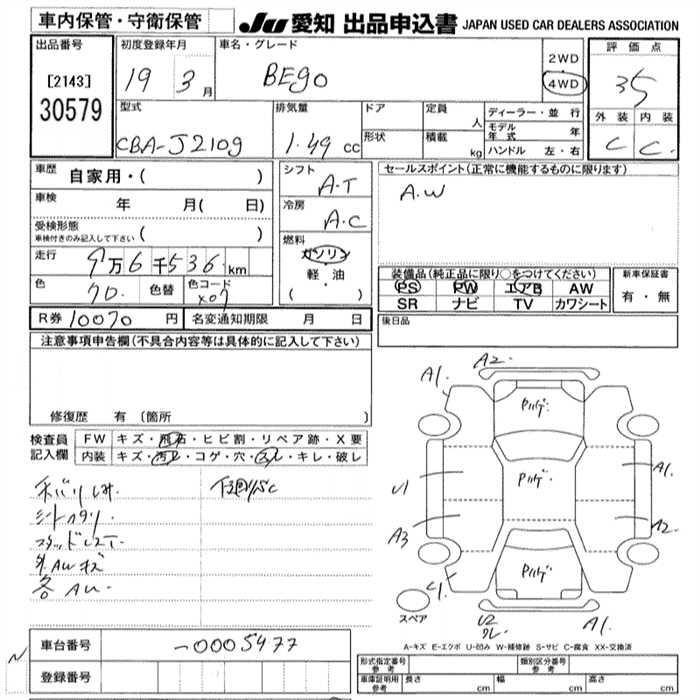 車内保管・守衛保管
JU 愛知 出品申込書 JAPAN USED CAR DEALERS ASSOCIATION
出品番号
[2143]
30579
初度登録年月
19 3月
車名・グレード
BEgo
2WD
4WD
評価点
35
外装 内装
C C.
型式
CBA-J210g
排気量
1.49 cc
ドア
形状
定員 人
積載 kg
ディーラー・並行
モデル年式 年
ハンドル 左・右
車歴 自家用・( )
車検 年 月( 日)
受検形態
車検付きのみ記入して下さい ( )
走行 9万6千536km
色 クロ. 色替 色コード X07
シフト
A.T
冷房
A.C
燃料
ガソリン
軽・油
( ・ )
セールスポイント(正常に機能するものに限ります)
A.W
装備品(純正品に限り○をつけてください)
PS PW エアB AW
SR ナビ TV カワシート
新車保証書
有・無
R券 10070 円 名変通知期限 月 日
後日品
注意事項申告欄(不具合内容等は具体的に記入して下さい)
修復歴 有 〔箇所 〕
検査員
記入欄
FW キズ・飛石・ヒビ割・リペア跡・X要
内装 キズ・汚れ・コゲ・穴・スレ・キレ・破レ
シートヘタリ
外AWキズ
各AU.
A2.
A1.
A1.
U1
A1.
A3
A2.
A1.
U2
スペア
A-キズ E-エクボ U-凹み W-補修跡 S-サビ C-腐食 XX-交換済
N
車台番号 -0005477
登録番号
形式指定番号 参考
類別区分番号 参考
車庫証明用 参考 長さ cm 幅 cm 高さ cm